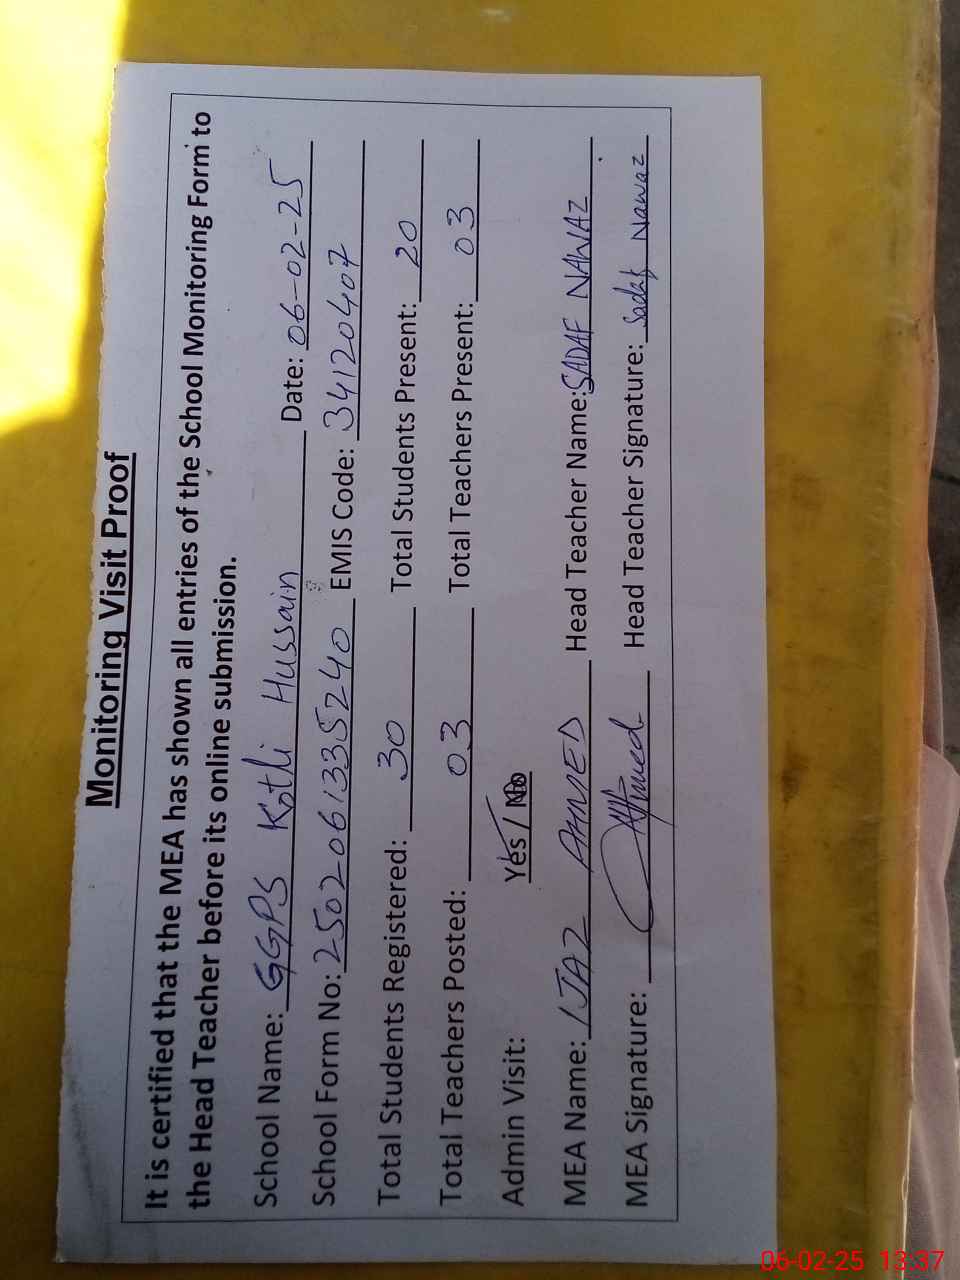 Monitoring Visit Proof
It is certified that the MEA has shown all entries of the School Monitoring Form to
the Head Teacher before its online submission.
School Name: GGPS Kothi Hussain Date: 06-02-25
School Form No: 2502061335240 EMIS Code: 34120407
Total Students Registered: 30 Total Students Present: 20
Total Teachers Posted: 03 Total Teachers Present: 03
Admin Visit: Yes / No
MEA Name: IJAZ AHMED Head Teacher Name: SADAF NAWAZ
MEA Signature: Ahmed Head Teacher Signature: Sadaf Nawaz
06-02-25 13:37